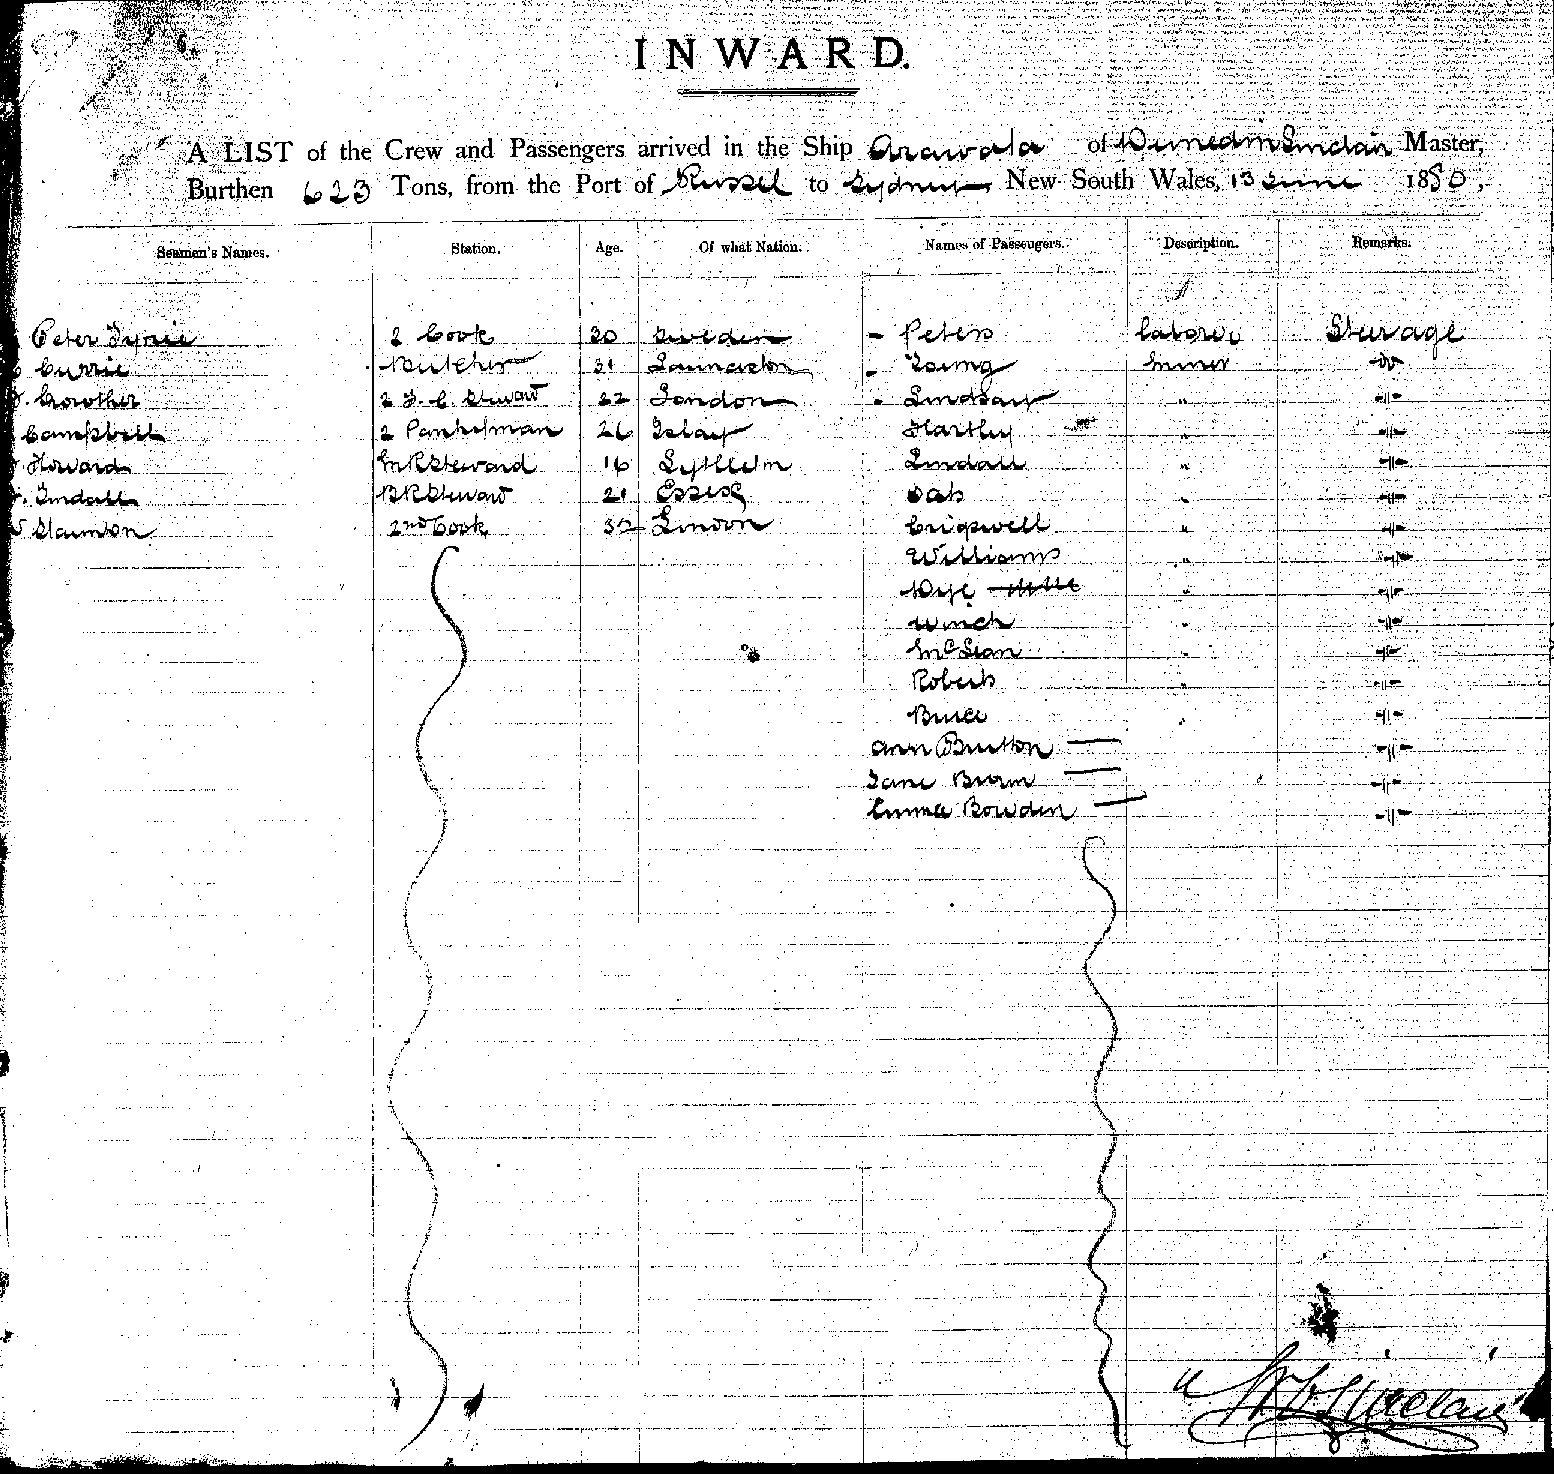 INWARD.
A LIST of the Crew and Passengers arrived in the Ship Arawata of Dunedin Sinclair Master,
Burthen 623 Tons, from the Port of Russel to Sydney, New South Wales, 13 June 1880,
Seamen's Names. Station. Age. Of what Nation. Names of Passengers. Description. Remarks.
Peter 2 Cook 30 Sweden - Peters Laborer Sturage
Currie Butcher 31 Launceston - Young Miner do
Crowther 2 S. C. Steward 22 London - Lindsay " -"-
Campbell 2 Pantryman 26 Islay Hartley " -"-
Howard M R Steward 16 Lyttleton Lindall " -"-
Lindall B R Steward 21 Essex Oats " -"-
Staunton 2nd Cook 32 London Cripwell " -"-
Williams " -"-
" -"-
Winch " -"-
McLean " -"-
Roberts " -"-
Bruce " -"-
Ann Burton — -"-
Jane — -"-
Emma Bowden — -"-
Sinclair